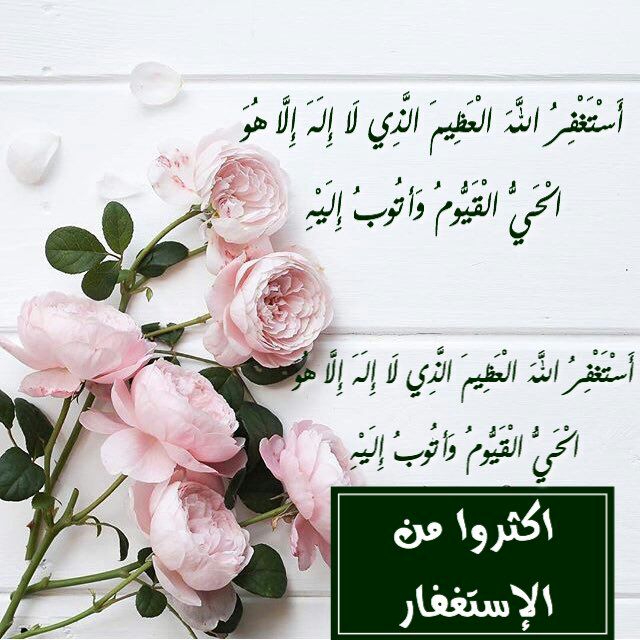 أَسْتَغْفِرُ اللَّهَ الْعَظِيمَ الَّذِي لَا إِلَهَ إِلَّا هُوَ
الْحَيُّ الْقَيُّومُ وَأَتُوبُ إِلَيْهِ
أَسْتَغْفِرُ اللَّهَ الْعَظِيمَ الَّذِي لَا إِلَهَ إِلَّا هُوَ
الْحَيُّ الْقَيُّومُ وَأَتُوبُ إِلَيْهِ
اكثروا من
الإستغفار